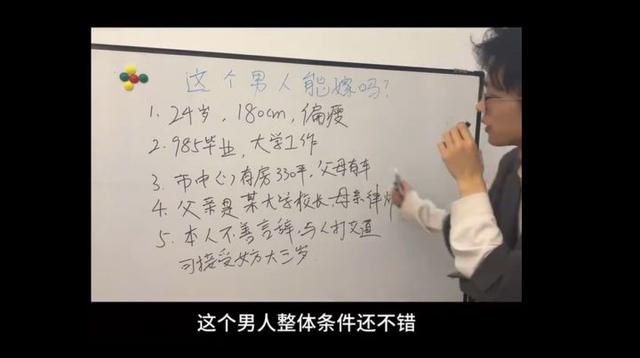 这个男人能嫁吗?
1. 24岁, 180cm, 偏瘦
2. 985毕业, 大学工作
3. 市中心有房330平, 父母有车
4. 父亲是某大学校长, 母亲律
5. 本人不善言辞, 与人打交道
可接受女方大三岁
这个男人整体条件还不错